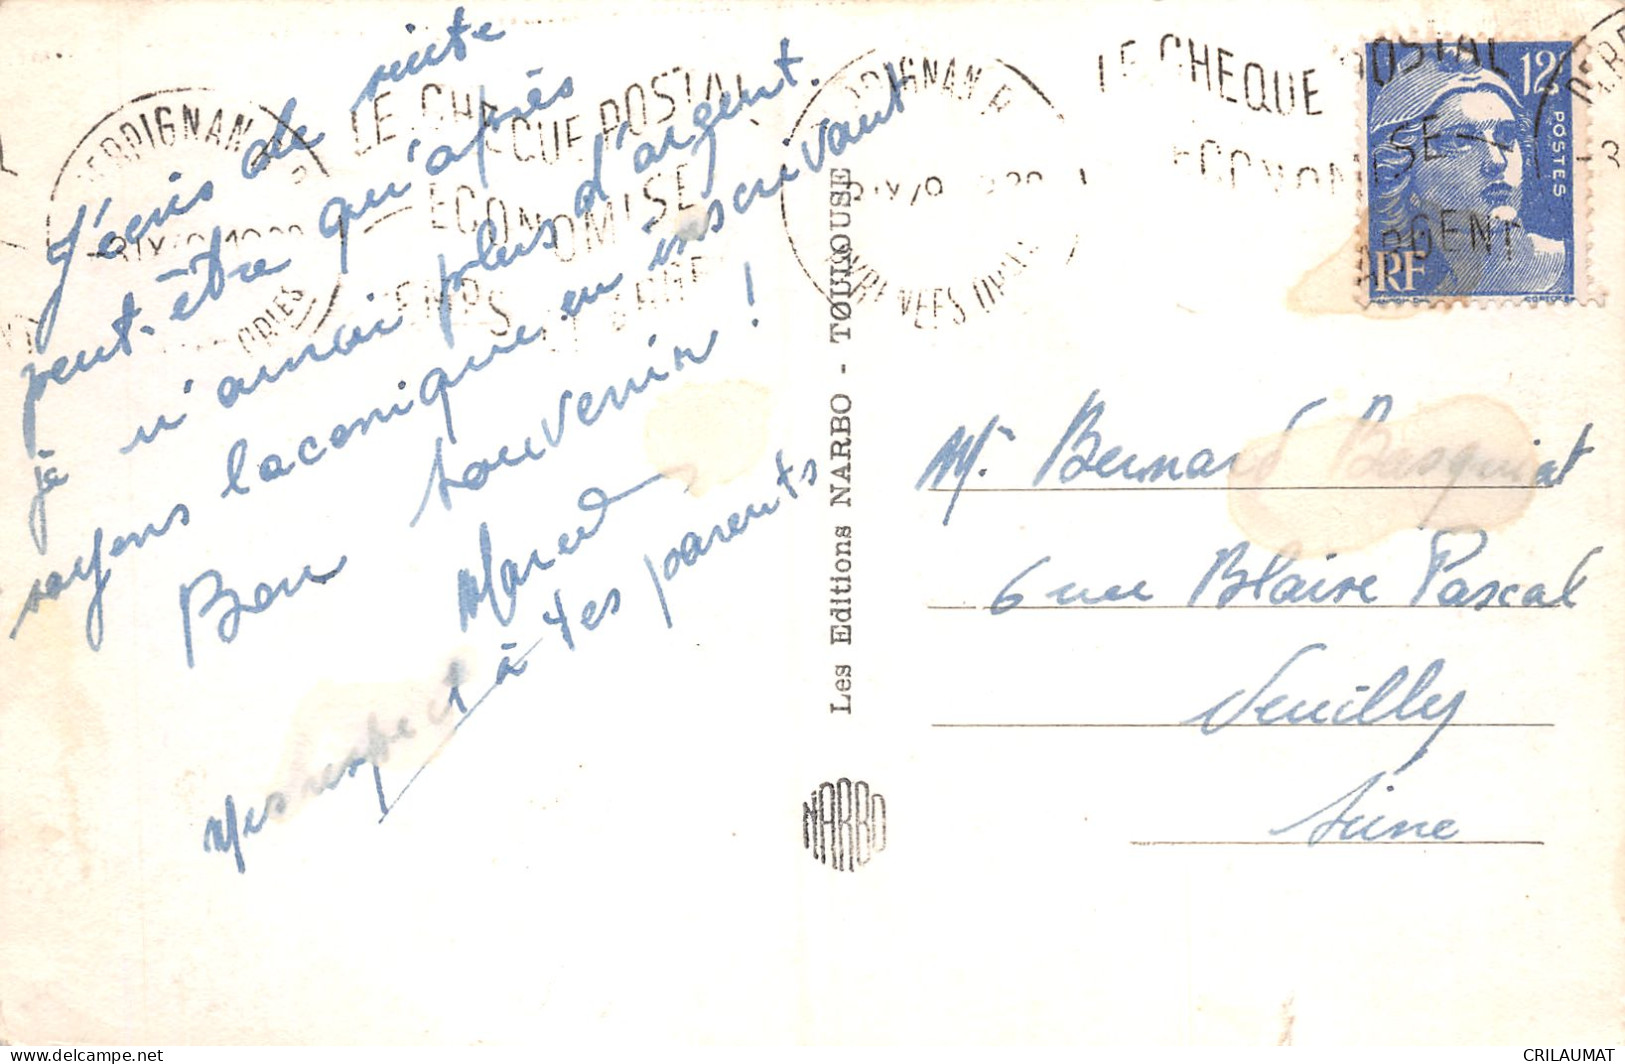 J'écris de suite
peut-être qu'après
je n'aurai plus d'argent.
soyons laconique en inscrivant
Bon souvenir !
Mes respect à tes parents
Les Editions NARBO - TOULOUSE
NARBO
PERPIGNAN
LE CHEQUE POSTAL
ECONOMISE
TEMPS ET ARGENT
PERPIGNAN
LE CHEQUE POSTAL
ECONOMISE
ARGENT
12F
POSTES
RF
Mr. Bernard Basquiat
6 rue Blaise Pascal
Neuilly
Seine
CRILAUMAT